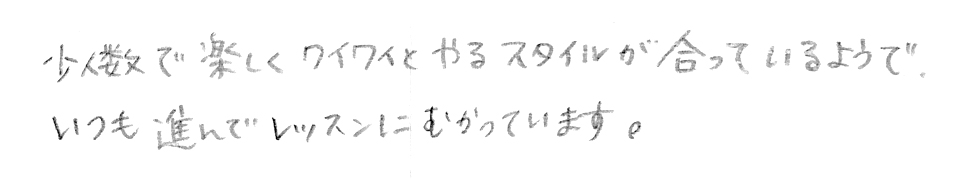 少人数で楽しくワイワイとやるスタイルが合っているようで、
いつも進んでレッスンにむかっています。